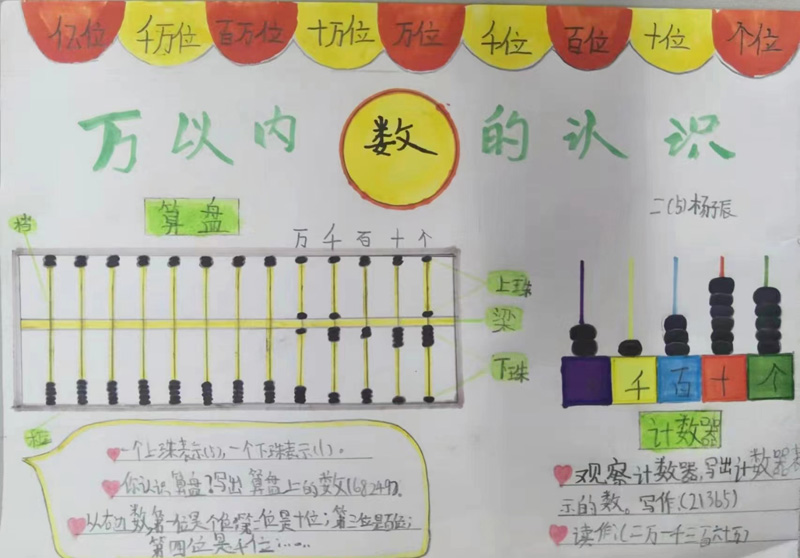 亿位 千万位 百万位 十万位 万位 千位 百位 十位 个位
万以内数的认识
二(5)杨子辰
算盘
档
万 千 百 十 个
上珠
梁
下珠
千 百 十 个
计数器
一个上珠表示(5),一个下珠表示(1)。
你认识算盘?写出算盘上的数(68249)。
以右边数,第一位是个位,第二位是十位;第三位是百位;
第四位是千位……
观察计数器,写出计数器表
示的数。写作(21365)
读作:(二万一千三百六十五)